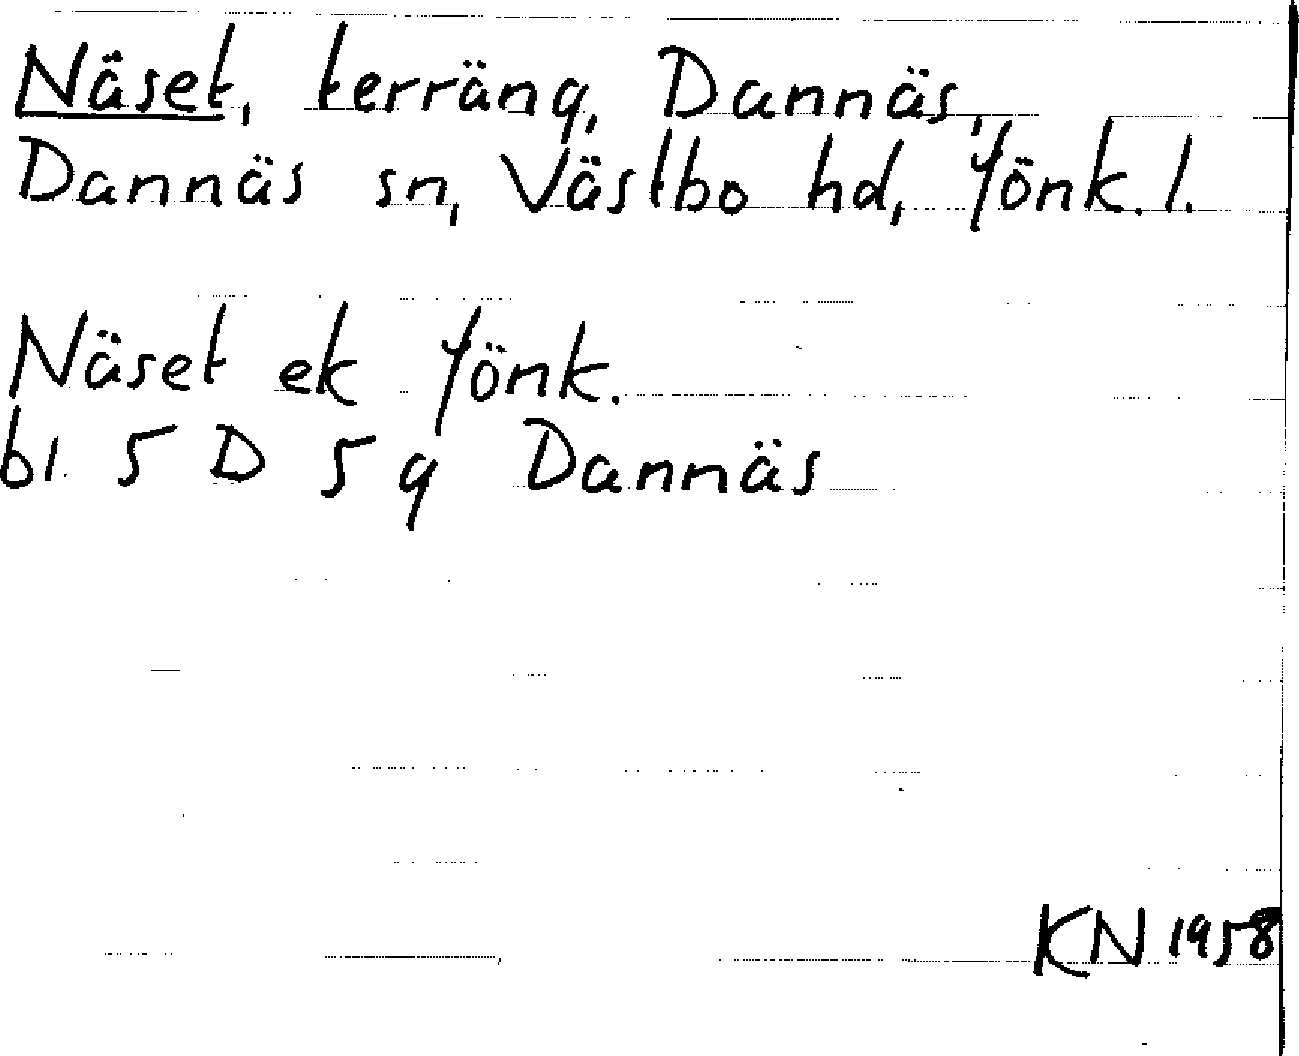 Näset, terräng, Dannäs,
Dannäs sn, Västbo hd, Jönk. l.
Näset ek Jönk.
bl. 5 D 5 g Dannäs
KN 1958